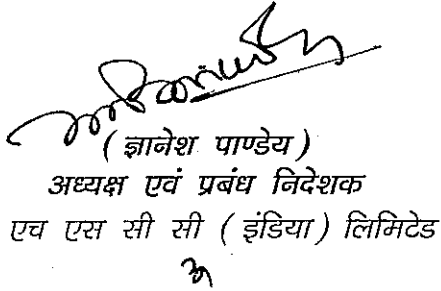 ( ज्ञानेश पाण्डेय )
अध्यक्ष एवं प्रबंध निदेशक
एच एस सी सी ( इंडिया ) लिमिटेड